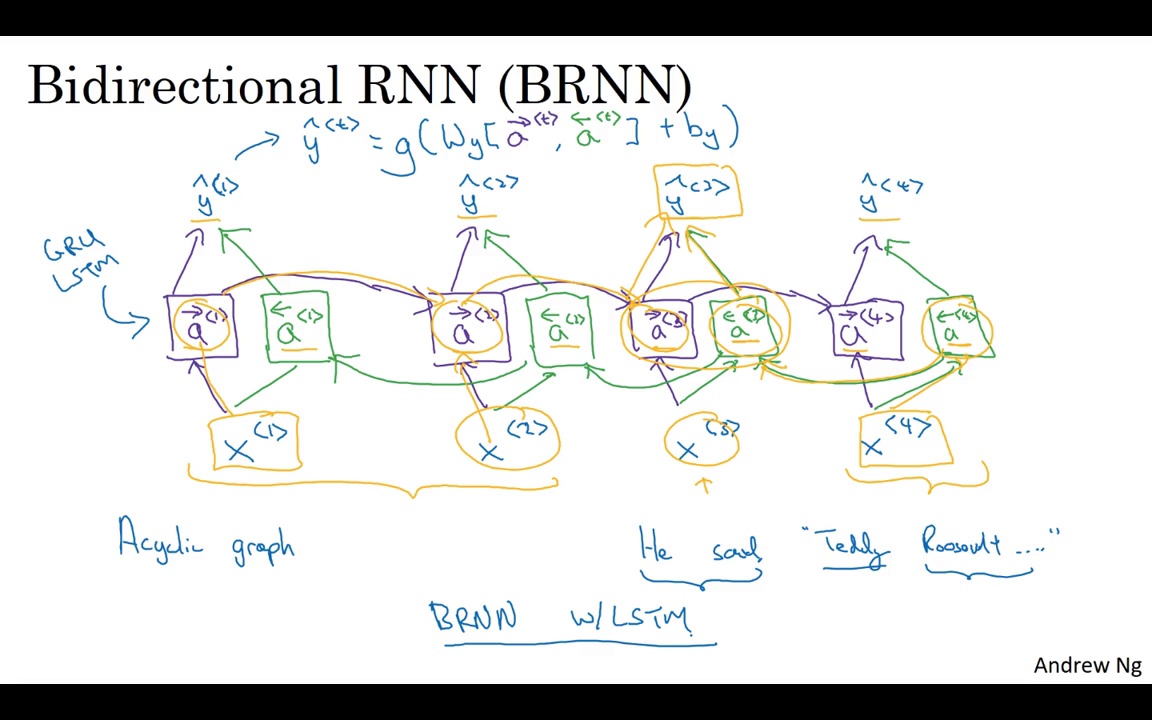 Bidirectional RNN (BRNN)
ŷ<t> = g(Wy[a→<t>, a←<t>] + by)
ŷ<1> ŷ<2> ŷ<3> ŷ<4>
GRU
LSTM
a→<1> a←<1> a→<2> a←<2> a→<3> a←<3> a→<4> a←<4>
x<1> x<2> x<3> x<4>
Acyclic graph He said "Teddy Roosevelt ...."
BRNN w/LSTM
Andrew Ng